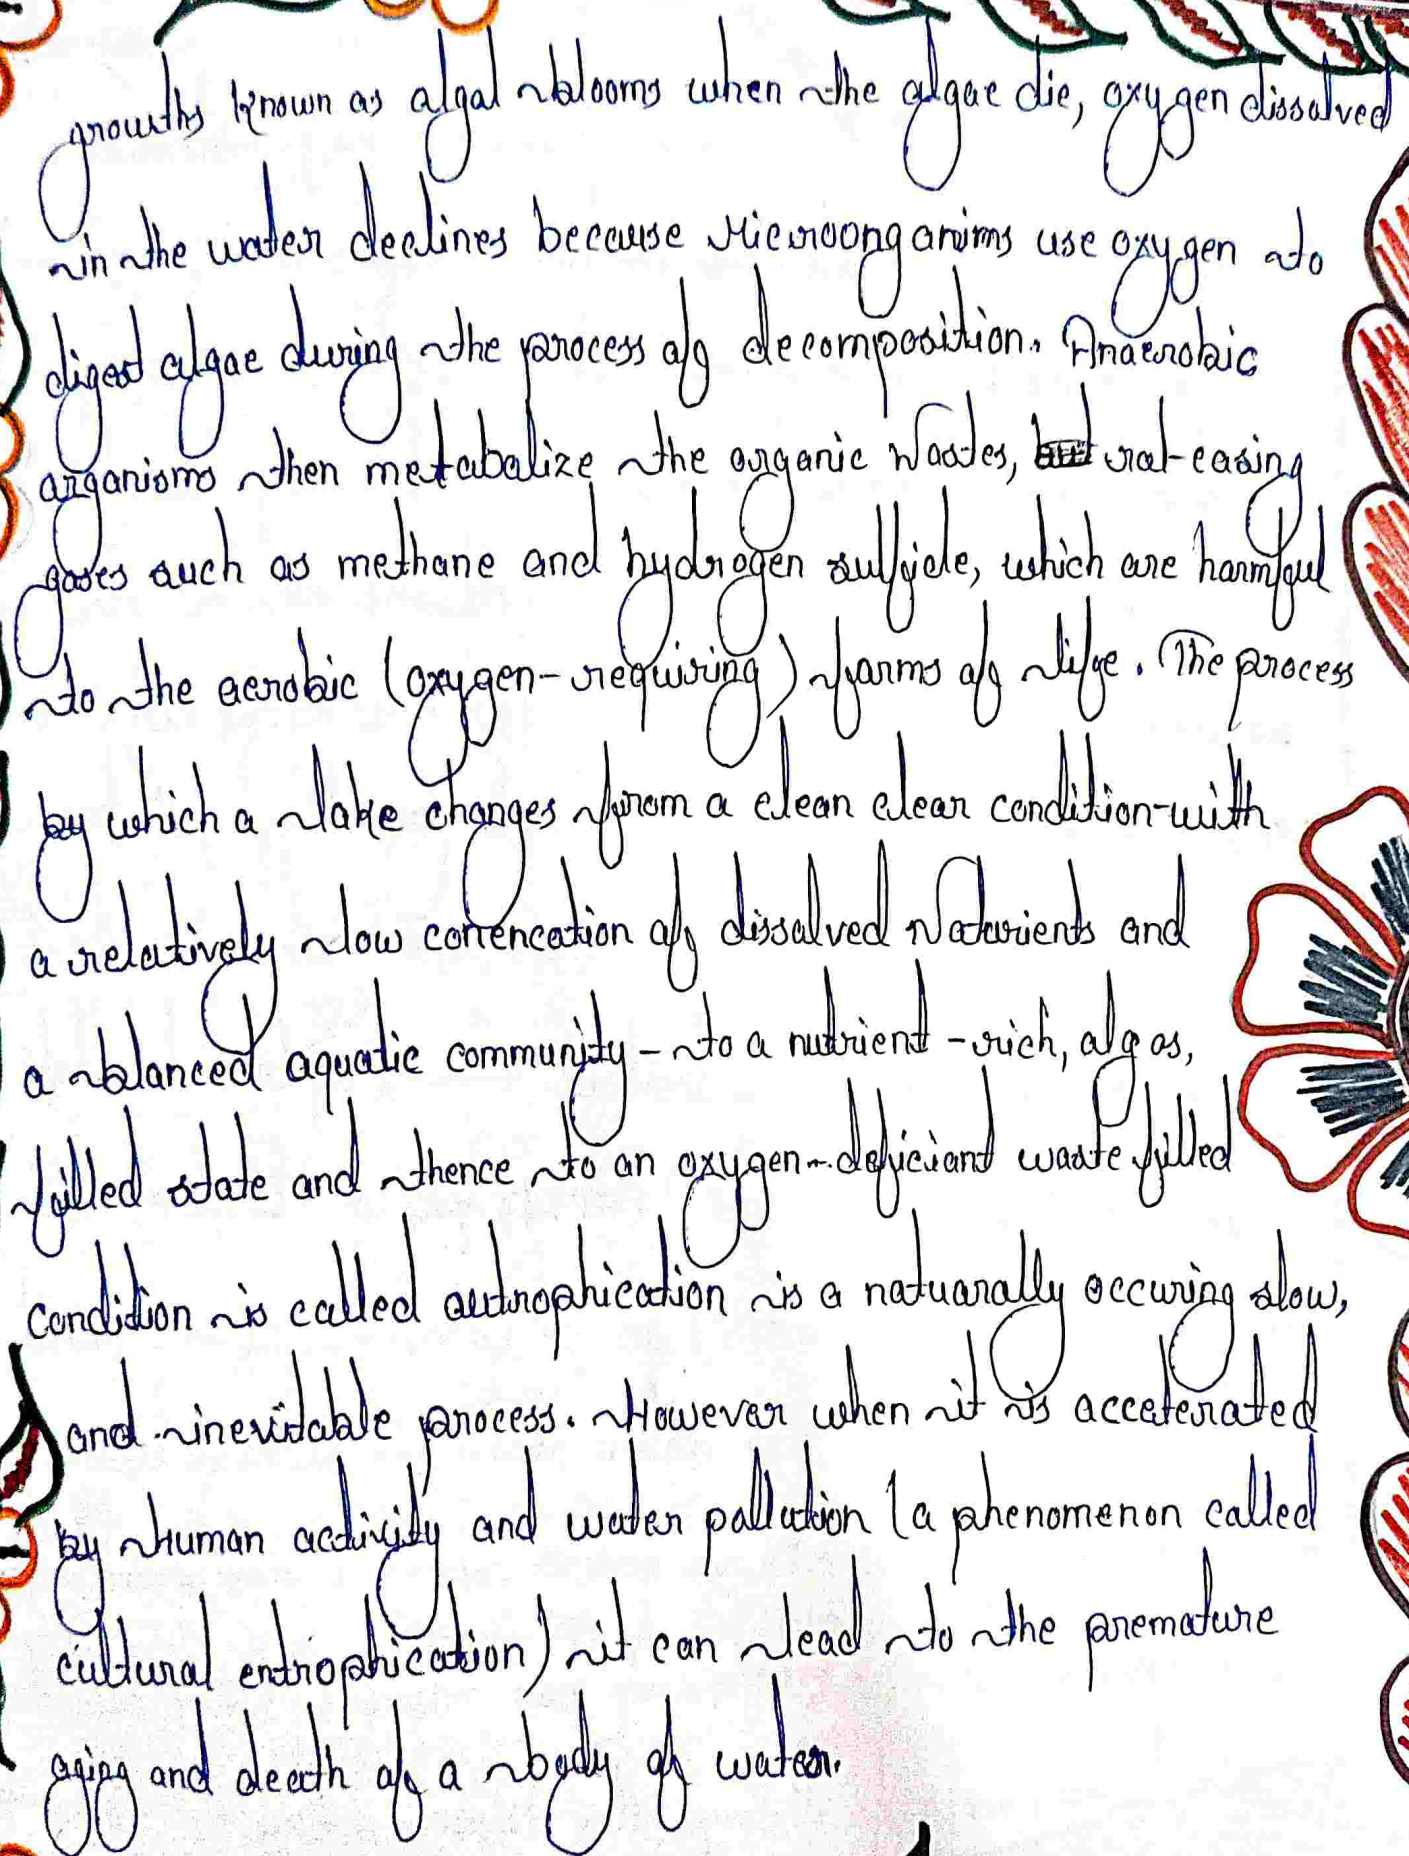 growths known as algal blooms when the algae die, oxygen dissolved
in the water declines because Microorganisms use oxygen to
digest algae during the process of decomposition. Anaerobic
organisms then metabolize the organic wastes, releasing
gases such as methane and hydrogen sulfide, which are harmful
to the aerobic (oxygen-requiring) forms of life. The process
by which a lake changes from a clean clear condition-with
a relatively low concencation of dissolved Nutrients and
a blanced aquatic community - to a nutrient -rich, algas,
filled state and thence to an oxygen-deficiant waste filled
condition is called eutrophication is a natuarally occuring slow,
and inevitable process. However when it is accelerated
by Human activity and water pollution (a phenomenon called
cultural entrophication) it can lead to the premature
aging and death of a body of water.